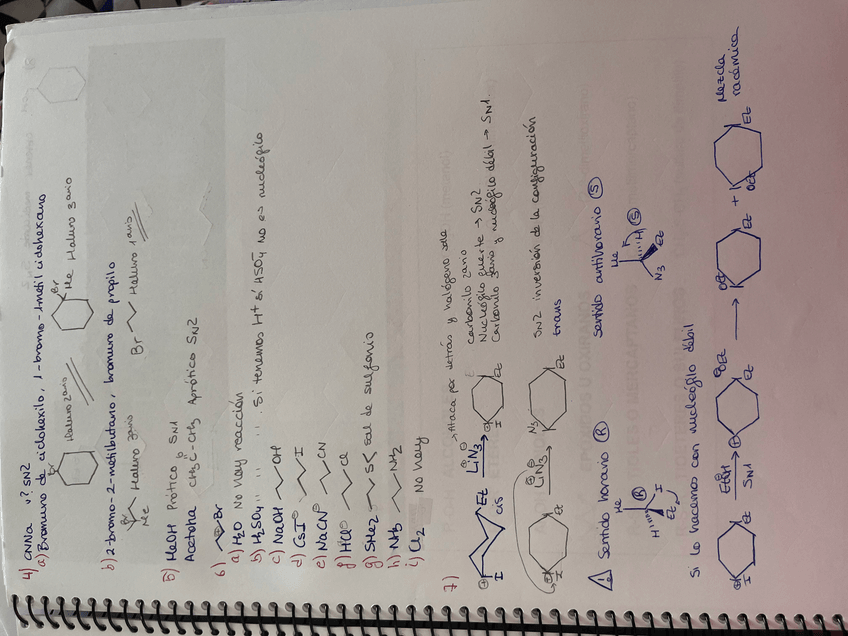 4) CNNa v? SN2
a) Bromuro de ciclohexilo, 1-bromo-1-metil ciclohexano
Br Haluro 2ario Br Me Haluro 3ario
b) 2-bromo-2-metilbutano, bromuro de propilo
Br Me Haluro 3ario Br Haluro 1ario
5) MeOH Prótico SN1
Acetona CH3C-CH3 Aprótico SN2
O
6) Br
a) H2O No hay reacción
b) H2SO4 " " " . Si tenemos H+ sí HSO4- no es nucleófilo
c) NaOH OH
d) CsI I
e) NaCN CN
f) HCl Cl
g) SMe2 S sal de sulfonio
h) NH3 NH2
i) Cl2 No hay
7) Ataca por detrás y halógeno sale
I Et cis LiN3 I Et
Carbonilo 2ario
Nucleófilo fuerte → SN2
Carbonilo 3ario y nucleófilo débil → SN1
I Et LiN3 N3 Et trans
SN2 inversión de la configuración
Sentido horario R sentido antihorario S
Me H R I Et Me H S N3 Et
Si lo hacemos con nucleófilo débil
I Et EtOH SN1 Et OEt OEt Et + OEt Et Mezcla racémica